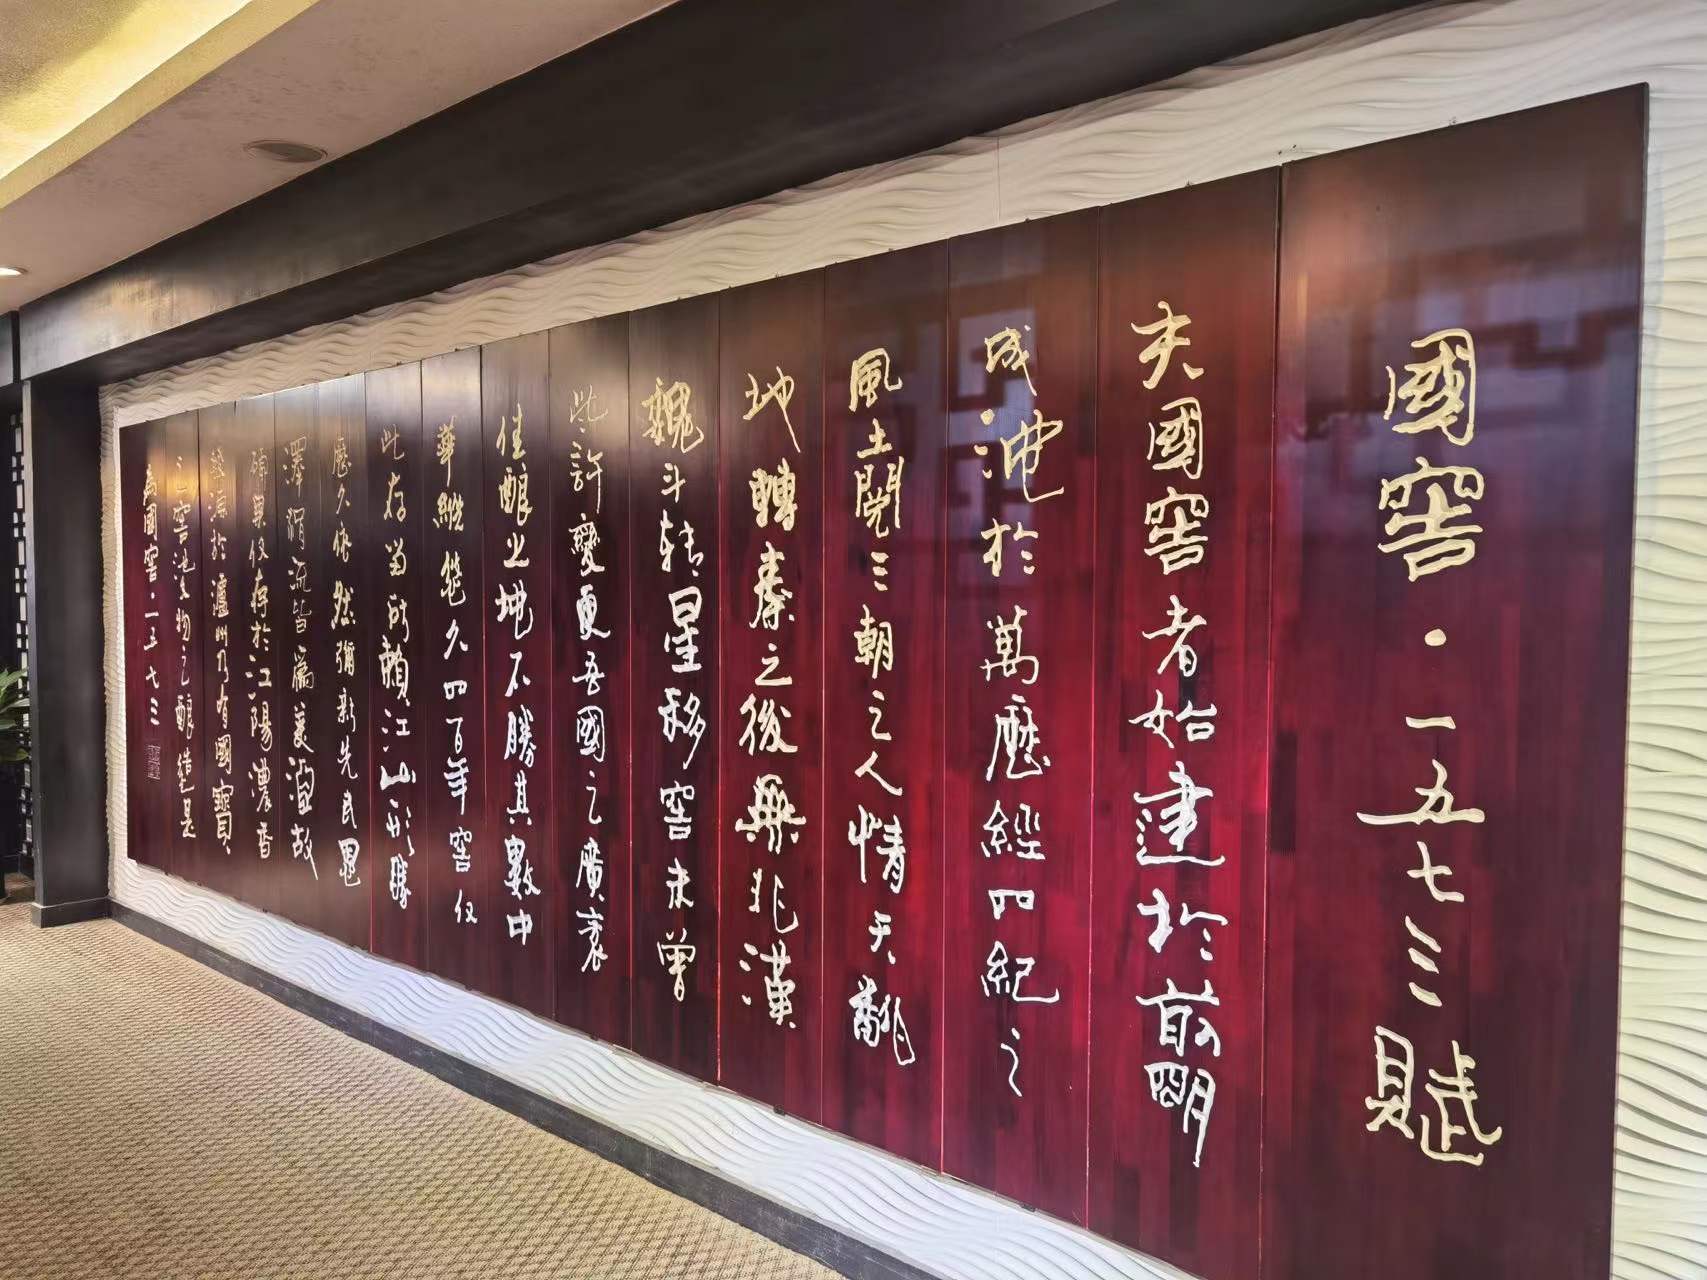 國窖·一五七三賦
夫國窖者始建於前明
成池於萬歷經四紀之
風土閱三朝之人情天翻
地轉秦之後無非漢
魏斗转星移窖未曾
此許變更吾國之廣袤
佳釀之地不勝其數中
華縱能久四百年窖仅
此存当所賴江山形勝
歷久依然彌新先民恩
澤涓流皆為美酒故
碩果仅存於江陽濃香
發源於瀘州乃有國寶
之窖池文物之釀造是
為國窖·一五七三